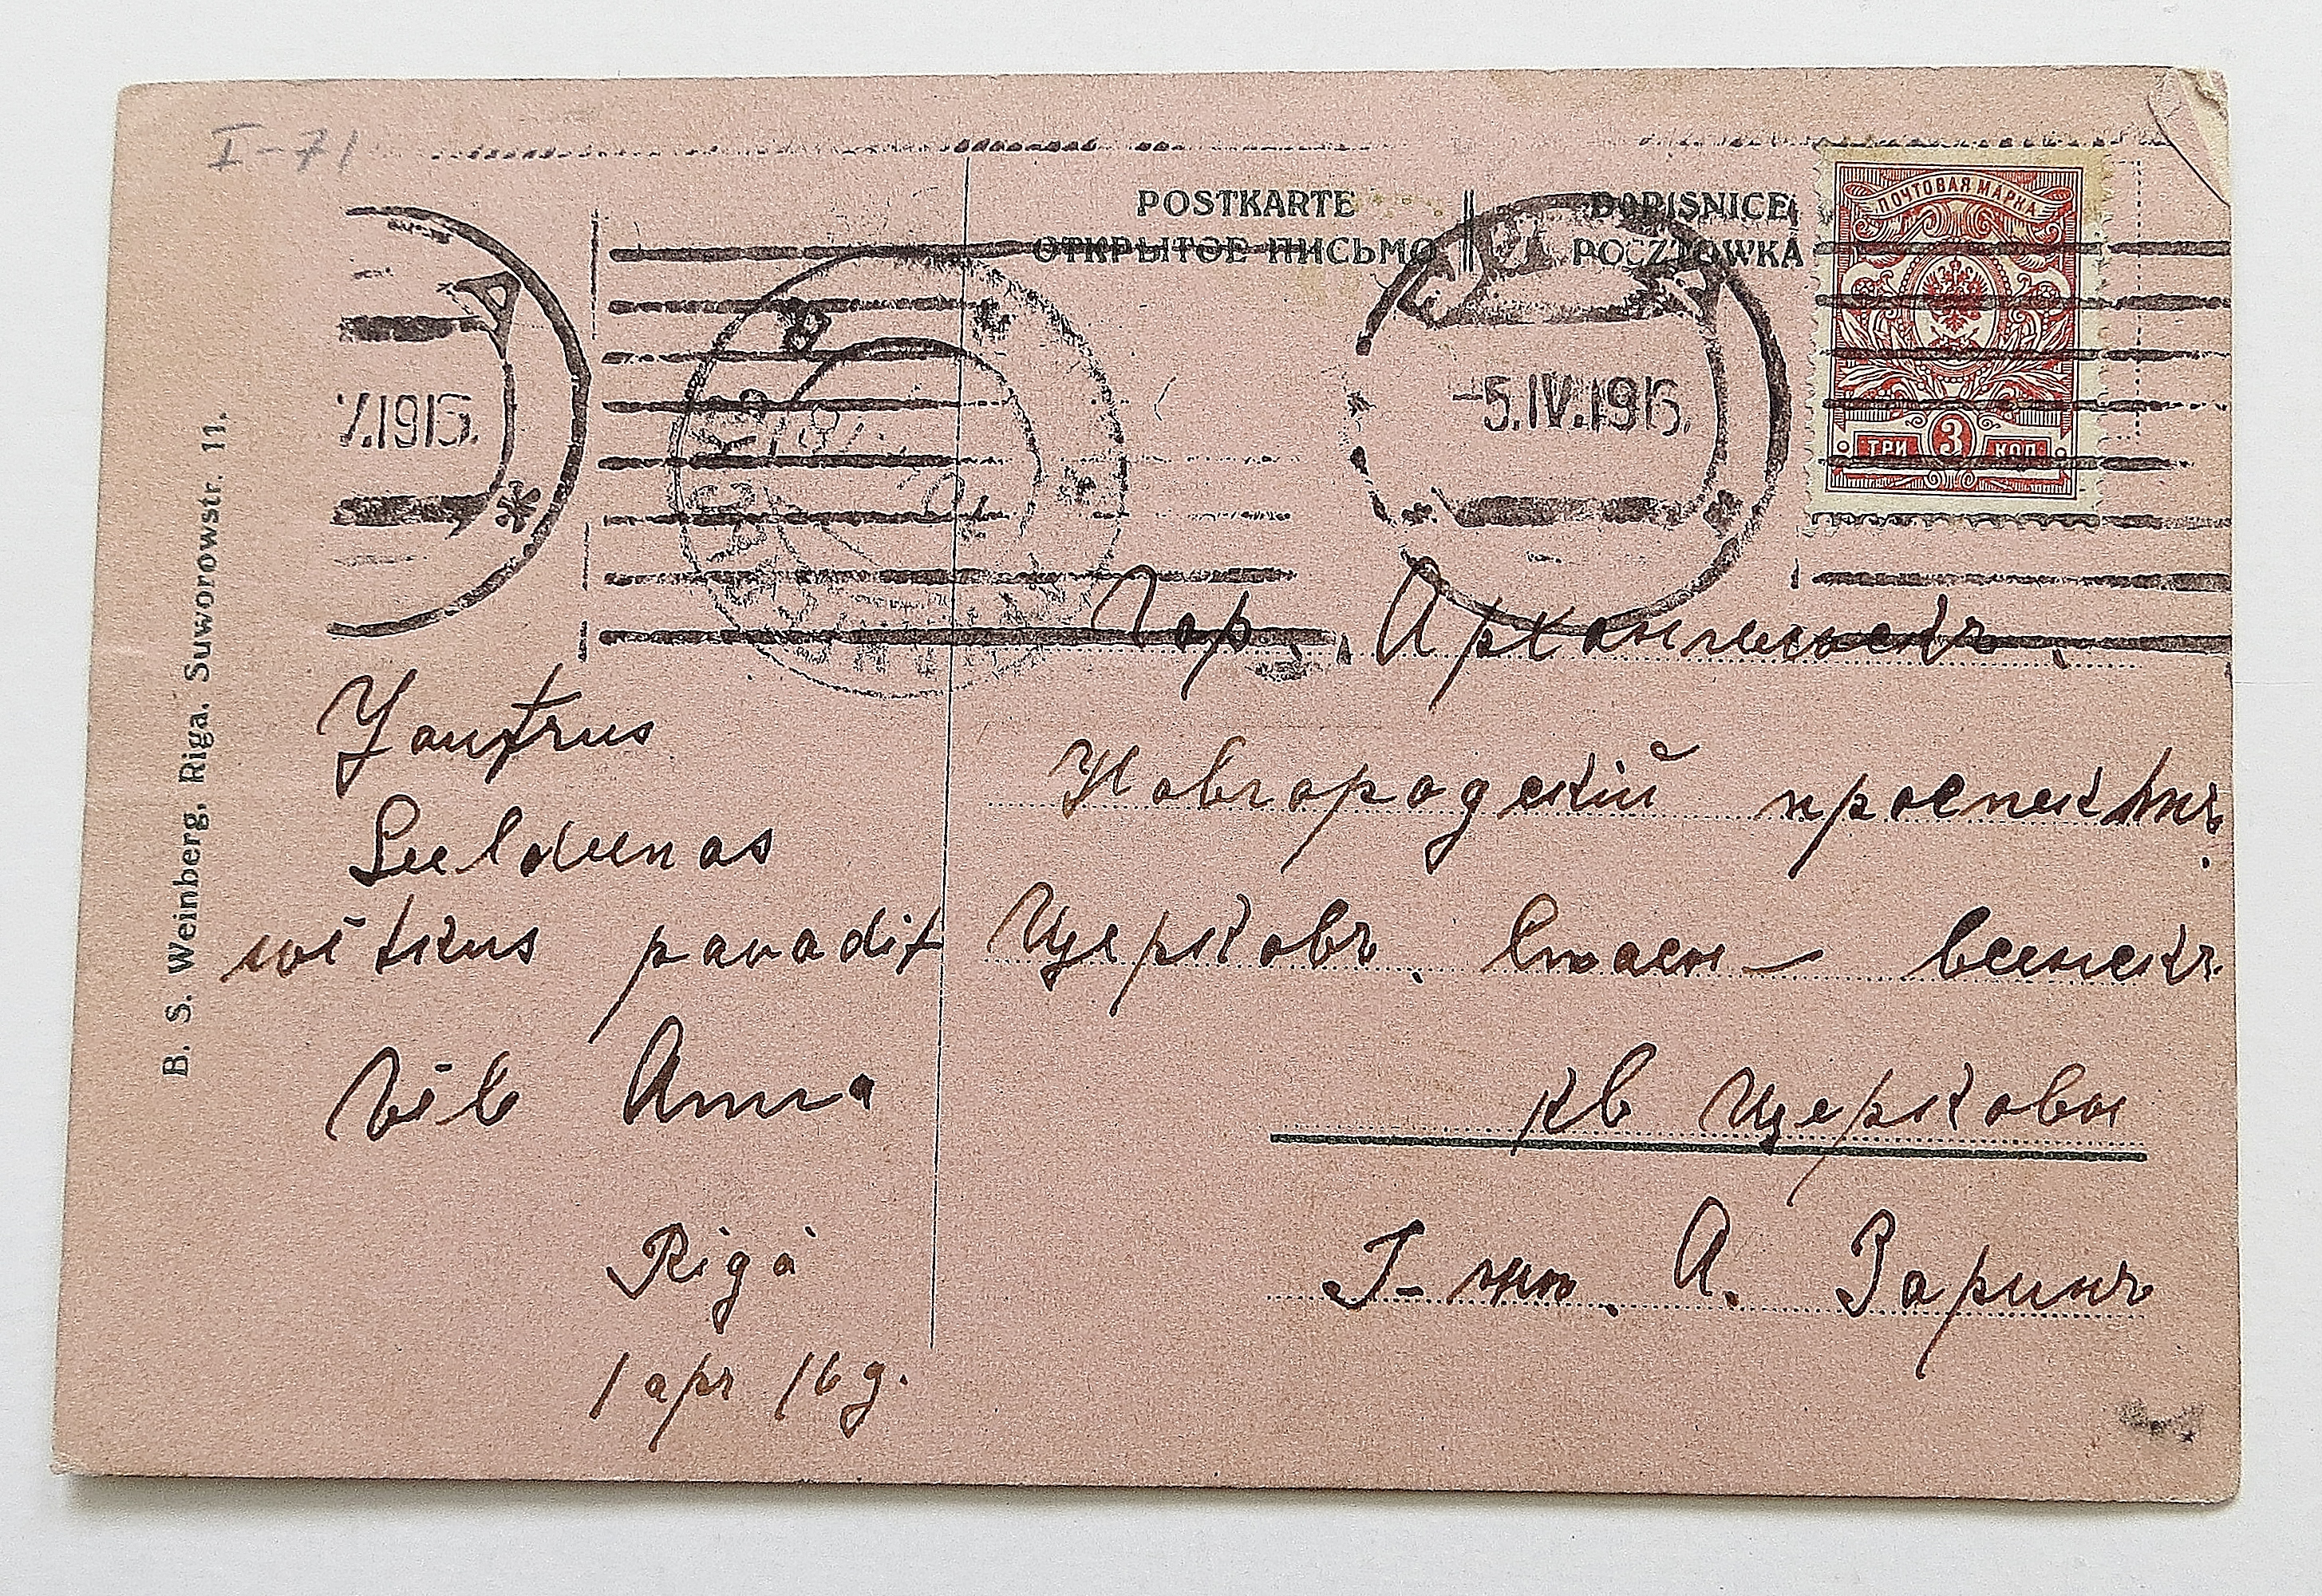 I-71
POSTKARTE
ОТКРЫТОЕ ПИСЬМО
DOPISNICE
POCZTÓWKA
ПОЧТОВАЯ МАРКА
ТРИ 3 КОП
7.1915.
-5.IV.1915.
B. S. Weinberg, Riga. Suworowstr. 11.
Jautrus
Leeldeenas
svētkus pavadit
vēl Anna
Rigā
1 apr 16 g.
Гор. Архангельскъ.
Новгородскій проспектъ.
Церковь.
кв Церкови
Г-жѣ. А. Заринъ